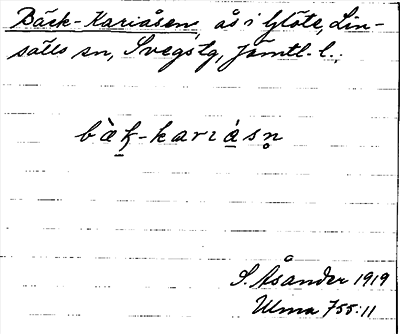 Bäck-Kariåsen, ås i Glöte, Lin-
sälls sn, Svegs tg, Jämtl. l.
bæ̀k-kariåsn̥
S. Åsander 1919
Ulma 755:11